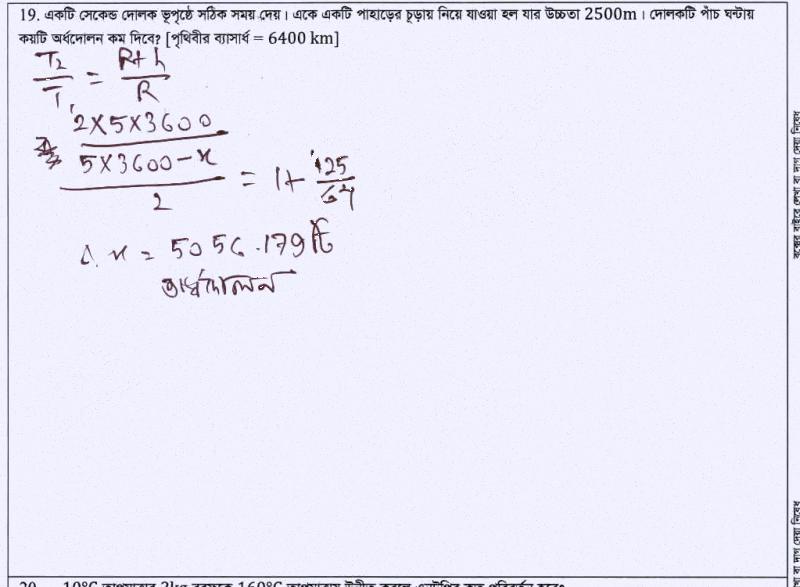 19. একটি সেকেন্ড দোলক ভূপৃষ্ঠে সঠিক সময় দেয়। একে একটি পাহাড়ের চূড়ায় নিয়ে যাওয়া হল যার উচ্চতা 2500m। দোলকটি পাঁচ ঘন্টায়
কয়টি অর্ধদোলন কম দিবে? [পৃথিবীর ব্যাসার্ধ = 6400 km]
T₂/T₁ = R+h/R
2×5×3600
5×3600-x
2
= 1+ 125/64
∴ x = 5056.179 টি
অর্ধদোলন
বক্সের বাইরে লেখা বা দাগ দেয়া নিষেধ
বা দাগ দেয়া নিষেধ